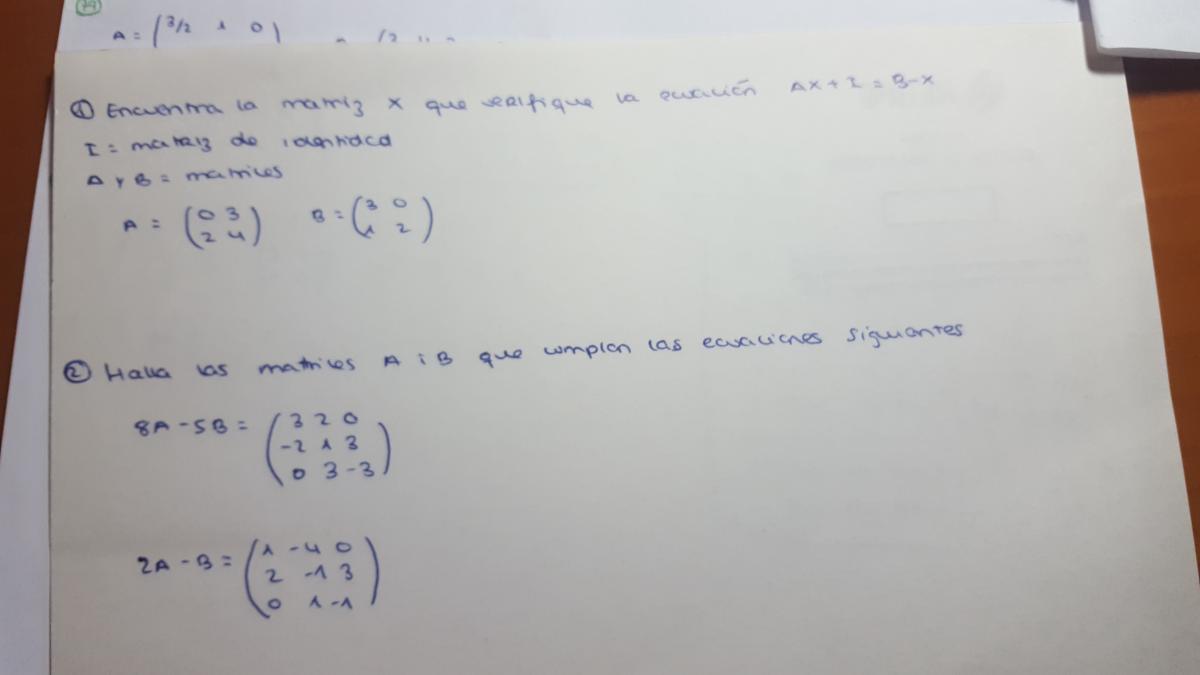 79
A = (3/2 1 0)
① Encuentra la matriz X que verifique la ecuación AX + I = B-X
I = matriz de identidad
A y B = matrices
A = (0 3
2 4) B = (3 0
1 2)
② Halla las matrices A i B que cumplan las ecuaciones siguientes
8A - 5B = (3 2 0
-2 1 3
0 3 -3)
2A - B = (1 -4 0
2 -1 3
0 1 -1)